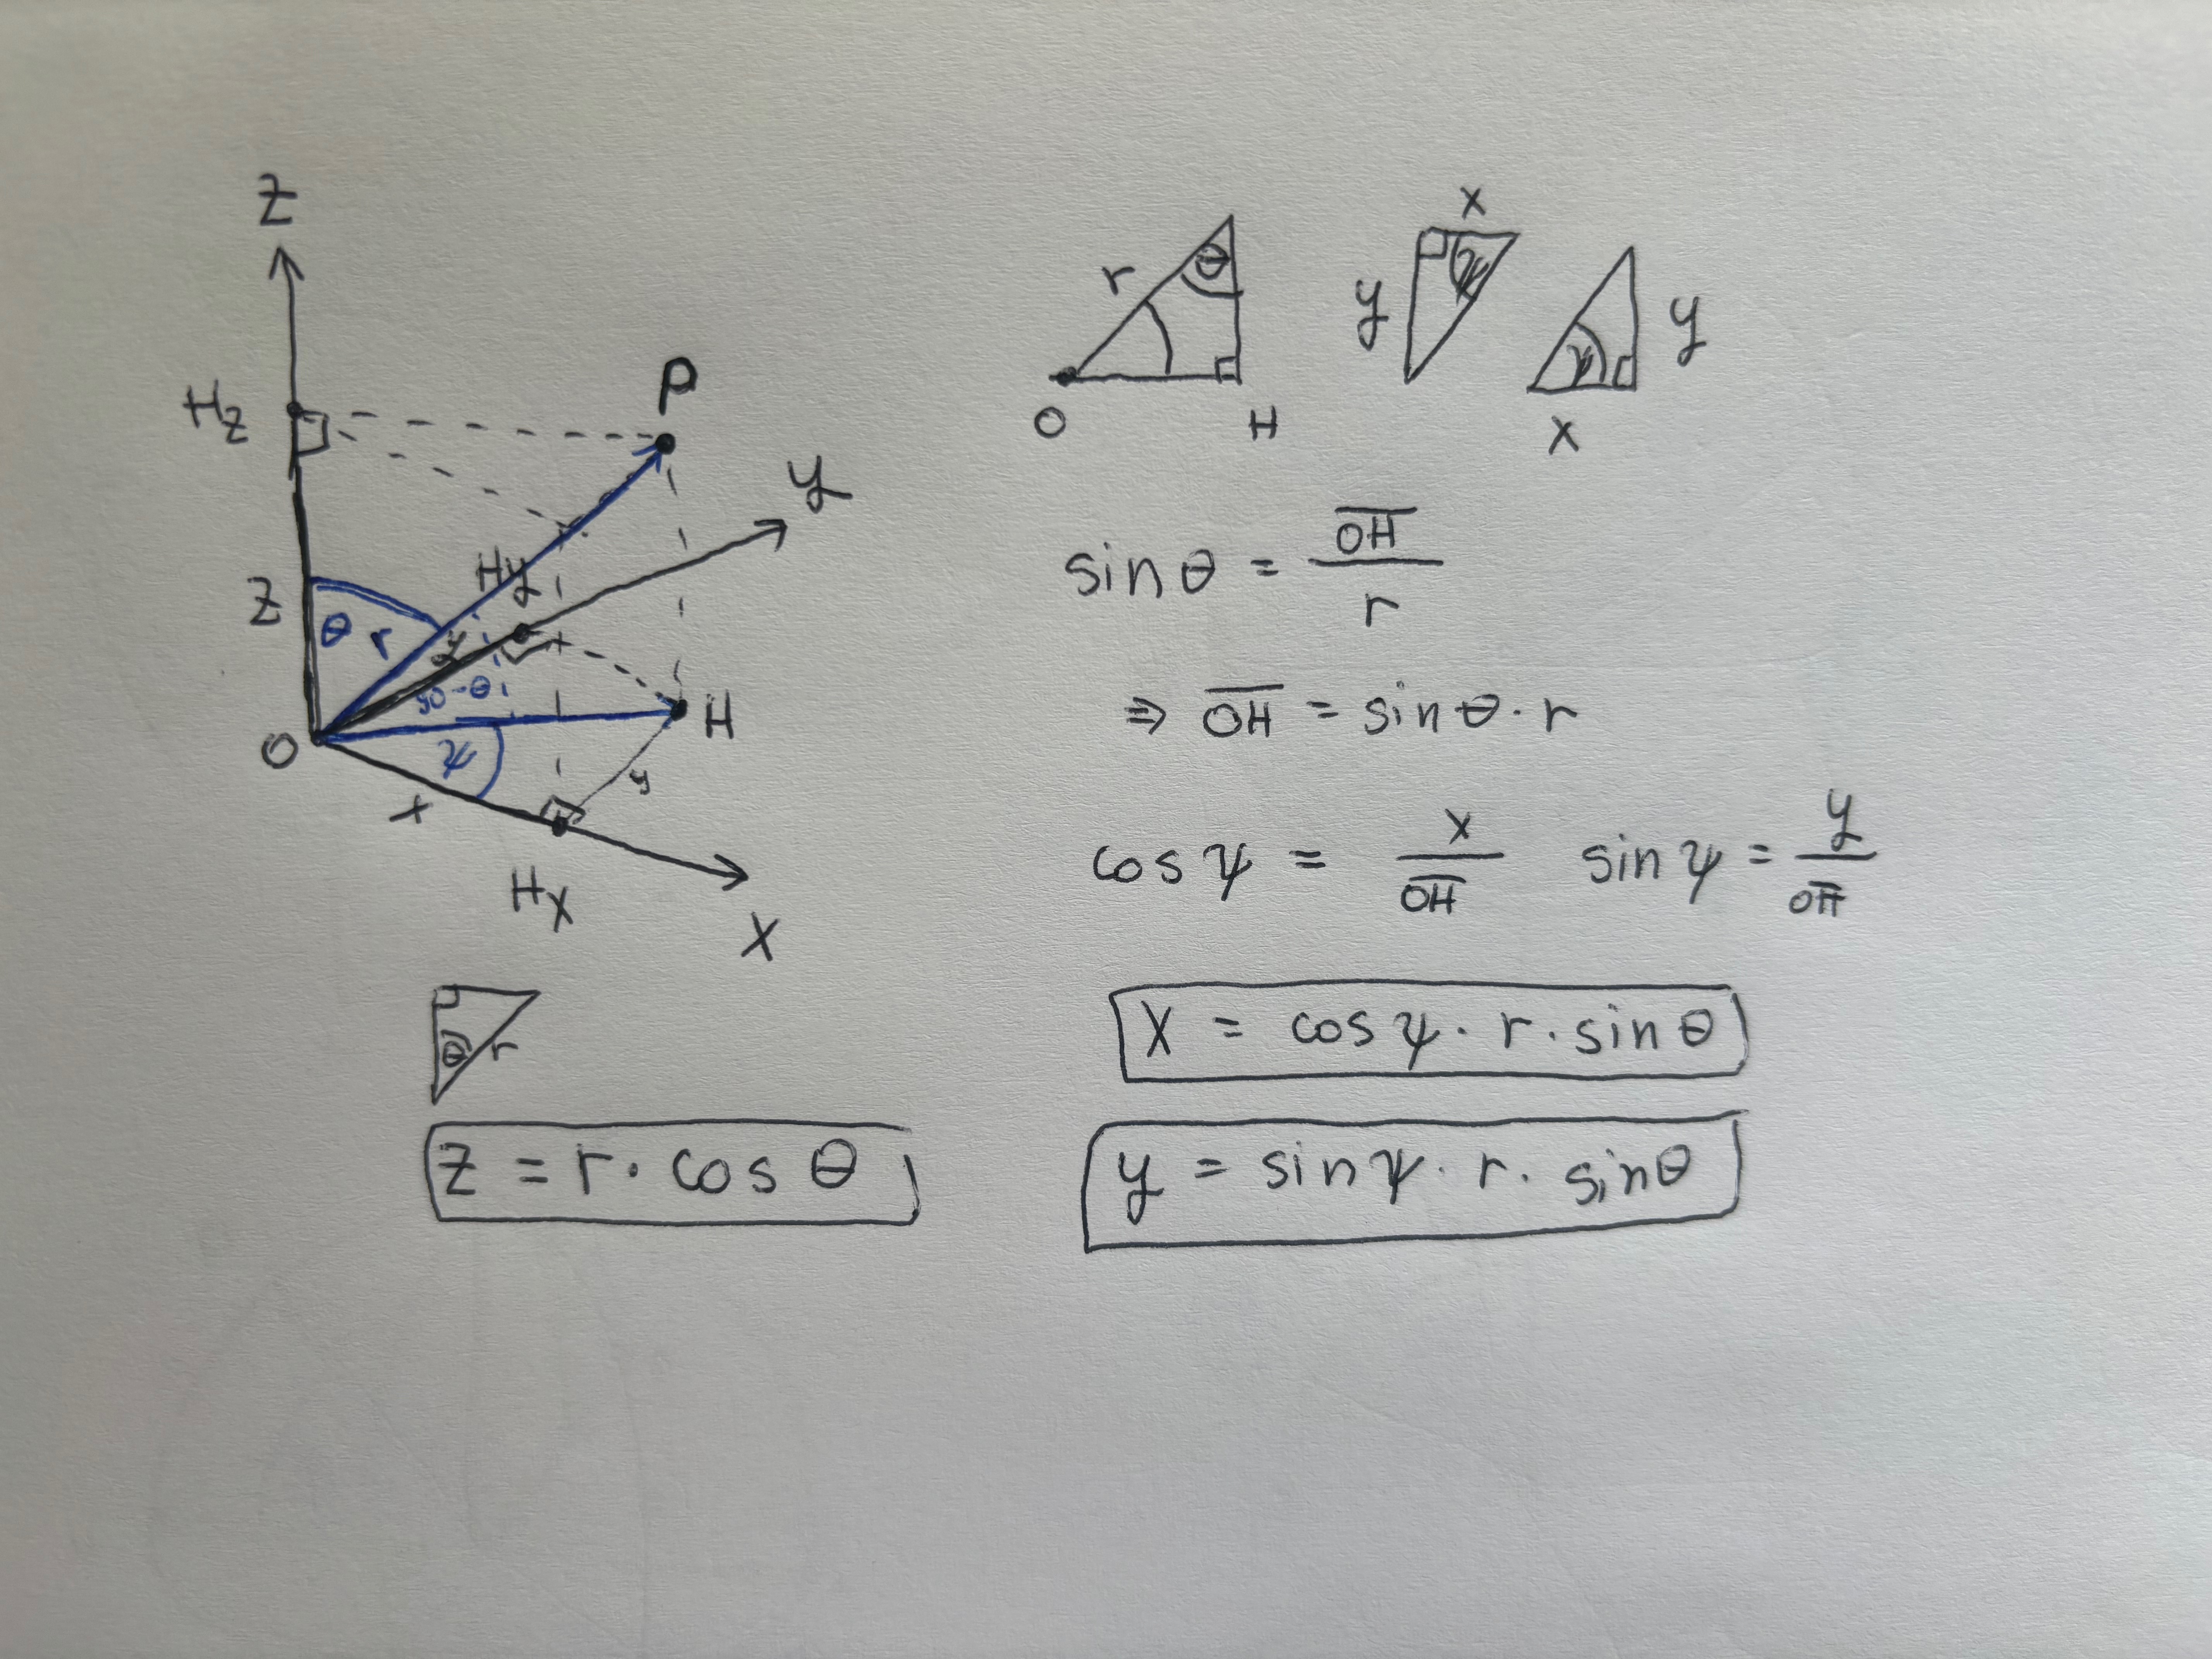 Z
H_z
P
y
Z
Hy
θ r
y
90-θ
O
H
ψ
x
y
H_x
X
θ r
z = r · cos θ
r θ
O H
x
y ψ
ψ y
x
sin θ = OH̅ / r
⇒ OH̅ = sin θ · r
cos ψ = x / OH̅ sin ψ = y / OH̅
x = cos ψ · r · sin θ
y = sin ψ · r · sin θ